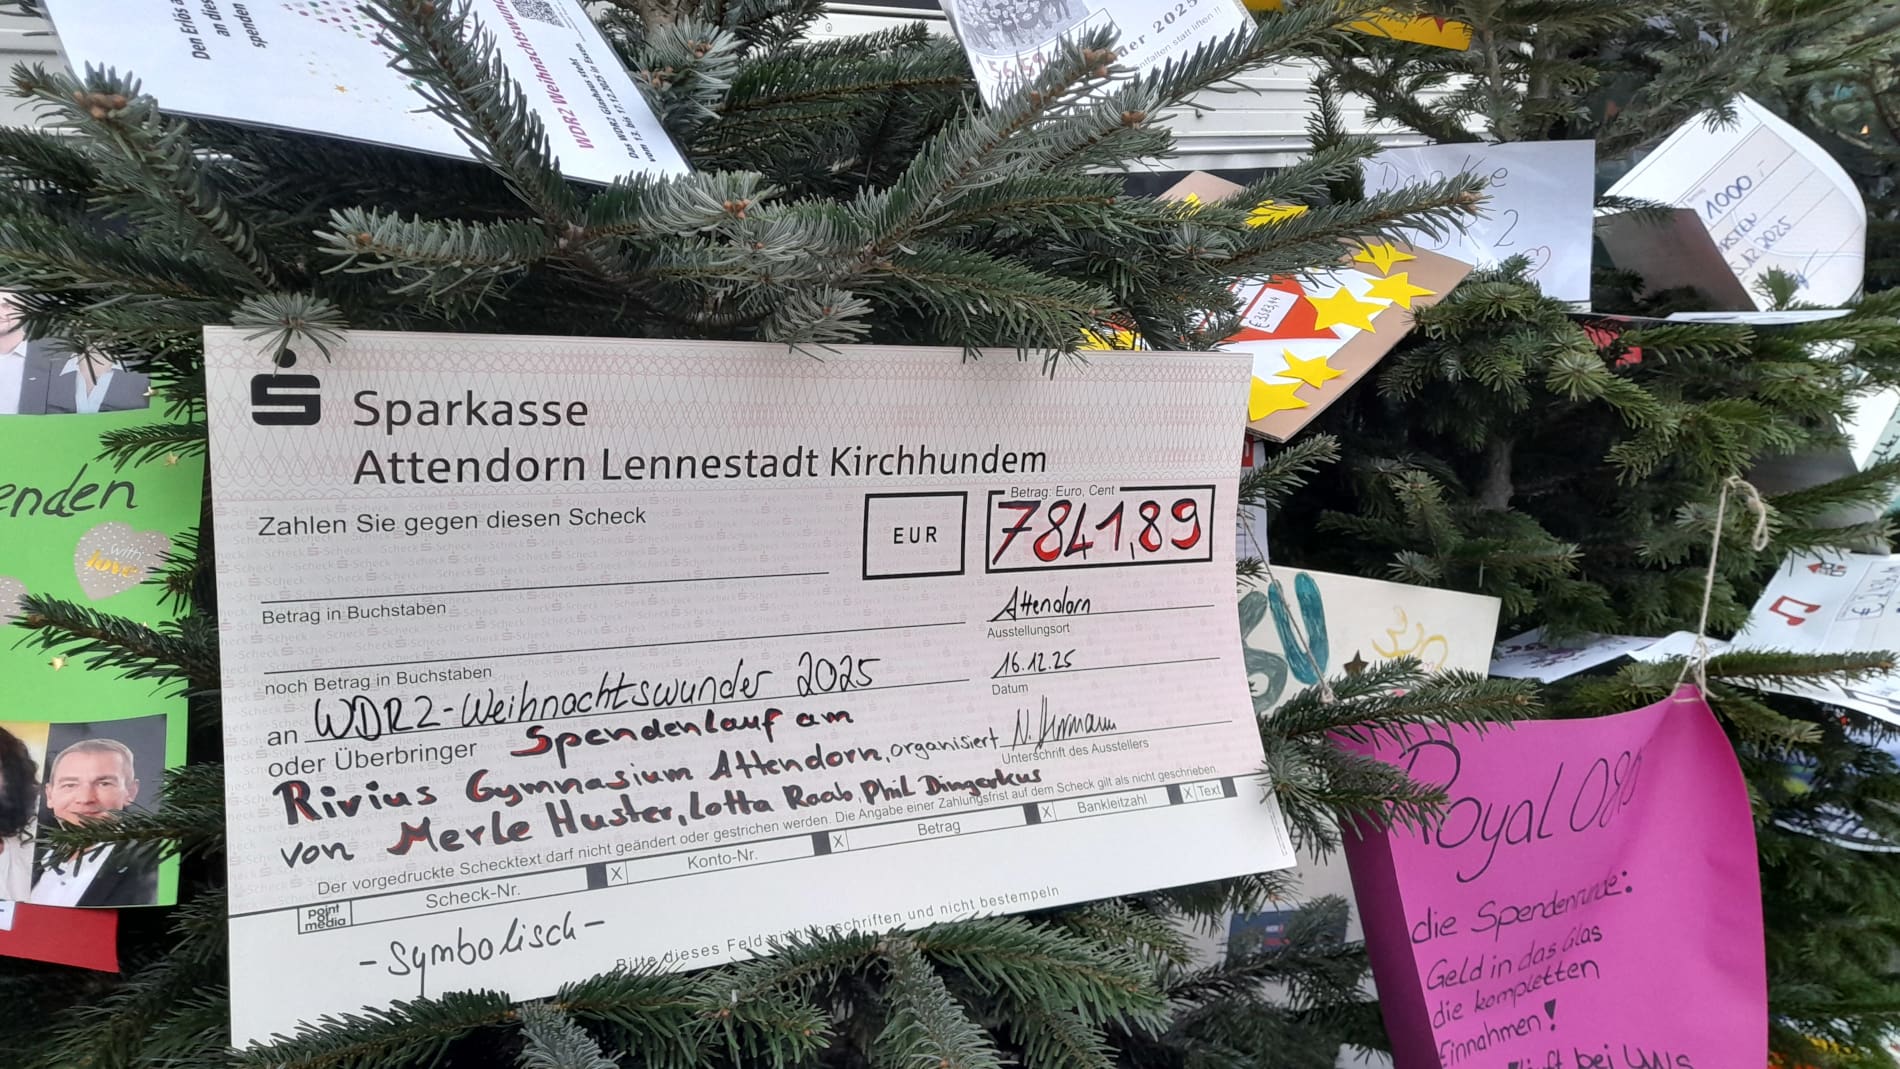 Den Erlös
an dies
spenden
WDR2 Weihnachtswunder
Das WDR2 Glashaus steht
vom 13. bis 17.12.2025 in Essen.
2025
nfalten statt liften !!
Danke
2
1000,-
2025
€ 3583,14
enden
with
love
Sparkasse
Attendorn Lennestadt Kirchhundem
Zahlen Sie gegen diesen Scheck
EUR
Betrag: Euro, Cent
7841,89
Betrag in Buchstaben
Attendorn
Ausstellungsort
noch Betrag in Buchstaben
16.12.25
Datum
an WDR2-Weihnachtswunder 2025
oder Überbringer Spendenlauf am
Unterschrift des Ausstellers
Rivius Gymnasium Attendorn, organisiert
von Merle Huster, Lotta Raab, Phil Dingerkus
Der vorgedruckte Schecktext darf nicht geändert oder gestrichen werden. Die Angabe einer Zahlungsfrist auf dem Scheck gilt als nicht geschrieben.
Scheck-Nr. X Konto-Nr. X Betrag X Bankleitzahl X Text
point
of
media
-Symbolisch-
Bitte dieses Feld nicht beschriften und nicht bestempeln
Royal
die Spendenrunde:
Geld in das Glas
die kompletten
Einnahmen!
bei UNS